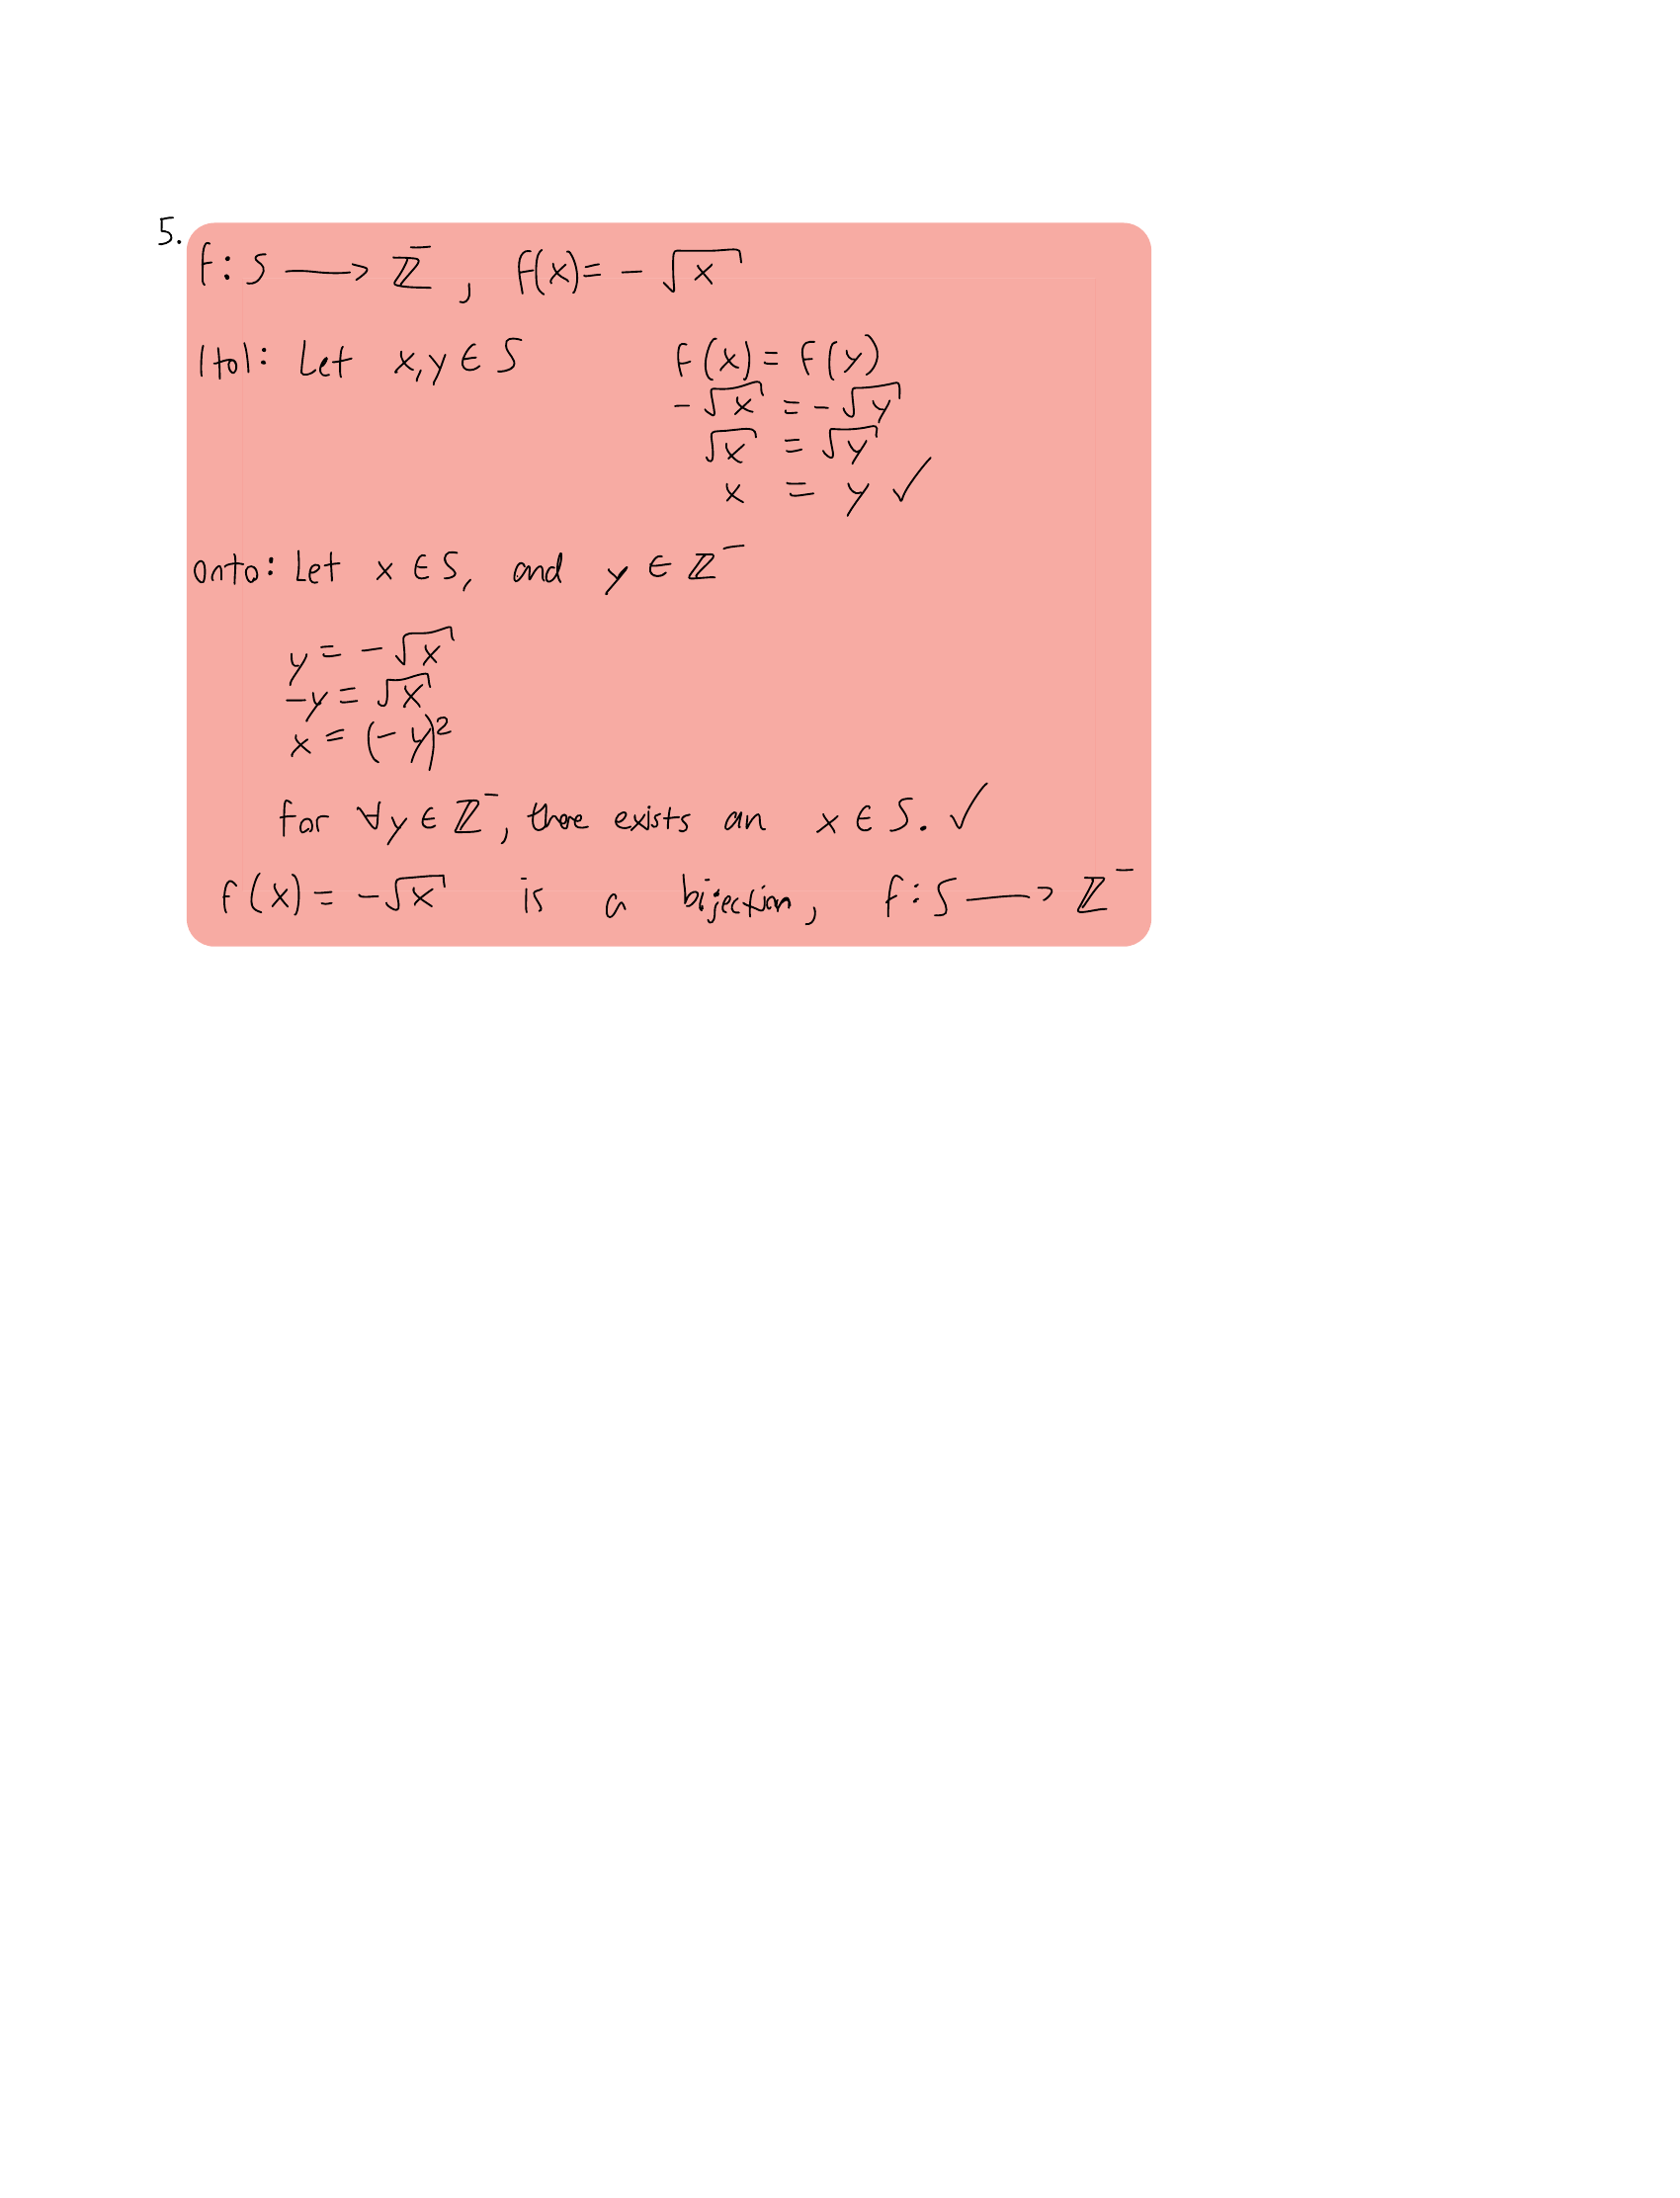 5.
f: S ⟶ ℤ⁻, f(x) = -√x
1to1: Let x,y ∈ S f(x) = f(y)
-√x = -√y
√x = √y
x = y ✓
onto: Let x ∈ S, and y ∈ ℤ⁻
y = -√x
-y = √x
x = (-y)²
for ∀y ∈ ℤ⁻, there exists an x ∈ S. ✓
f(x) = -√x is a bijection, f: S ⟶ ℤ⁻